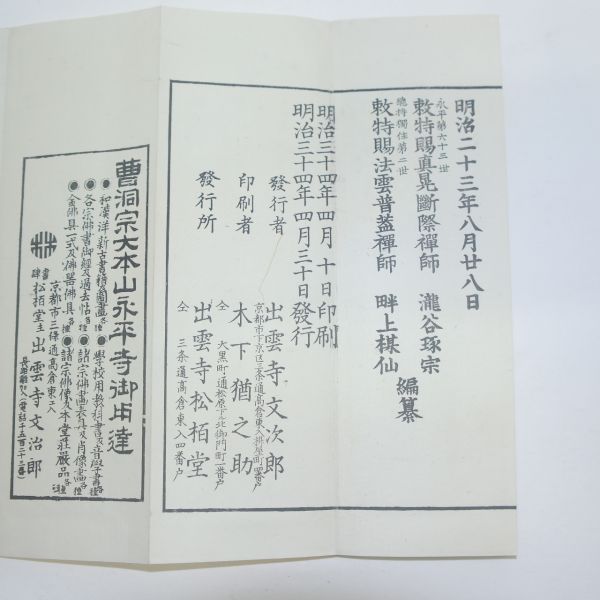 明治二十三年八月廿八日
永平第六十三世
敕特賜真晃斷際禪師 瀧谷琢宗
總持獨住第二世
敕特賜法雲普蓋禪師 畔上楳仙
編纂
明治三十四年四月十日印刷
明治三十四年四月三十日發行
京都市下京區三条通高倉東入桝屋町四番戸
發行者 出雲寺文次郎
仝 大黒町通松原下ル北御門町一番戸
印刷者 木下猶之助
仝 三条通高倉東入四番戸
發行所 出雲寺松栢堂
曹洞宗大本山永平寺御用達
●和漢洋新古書籍及圖畫各種●學校用教科書及音學書各種
●各宗佛書御經及過去帖各種●諸宗佛畫表具及肖像畫各種
●金佛具一式及佛器佛具各種●諸宗佛像及本堂莊嚴品各種
京都市三條通高倉東エ入
書肆 松栢堂主 出雲寺文治郎
長距離加入(電話千五百二十二番)